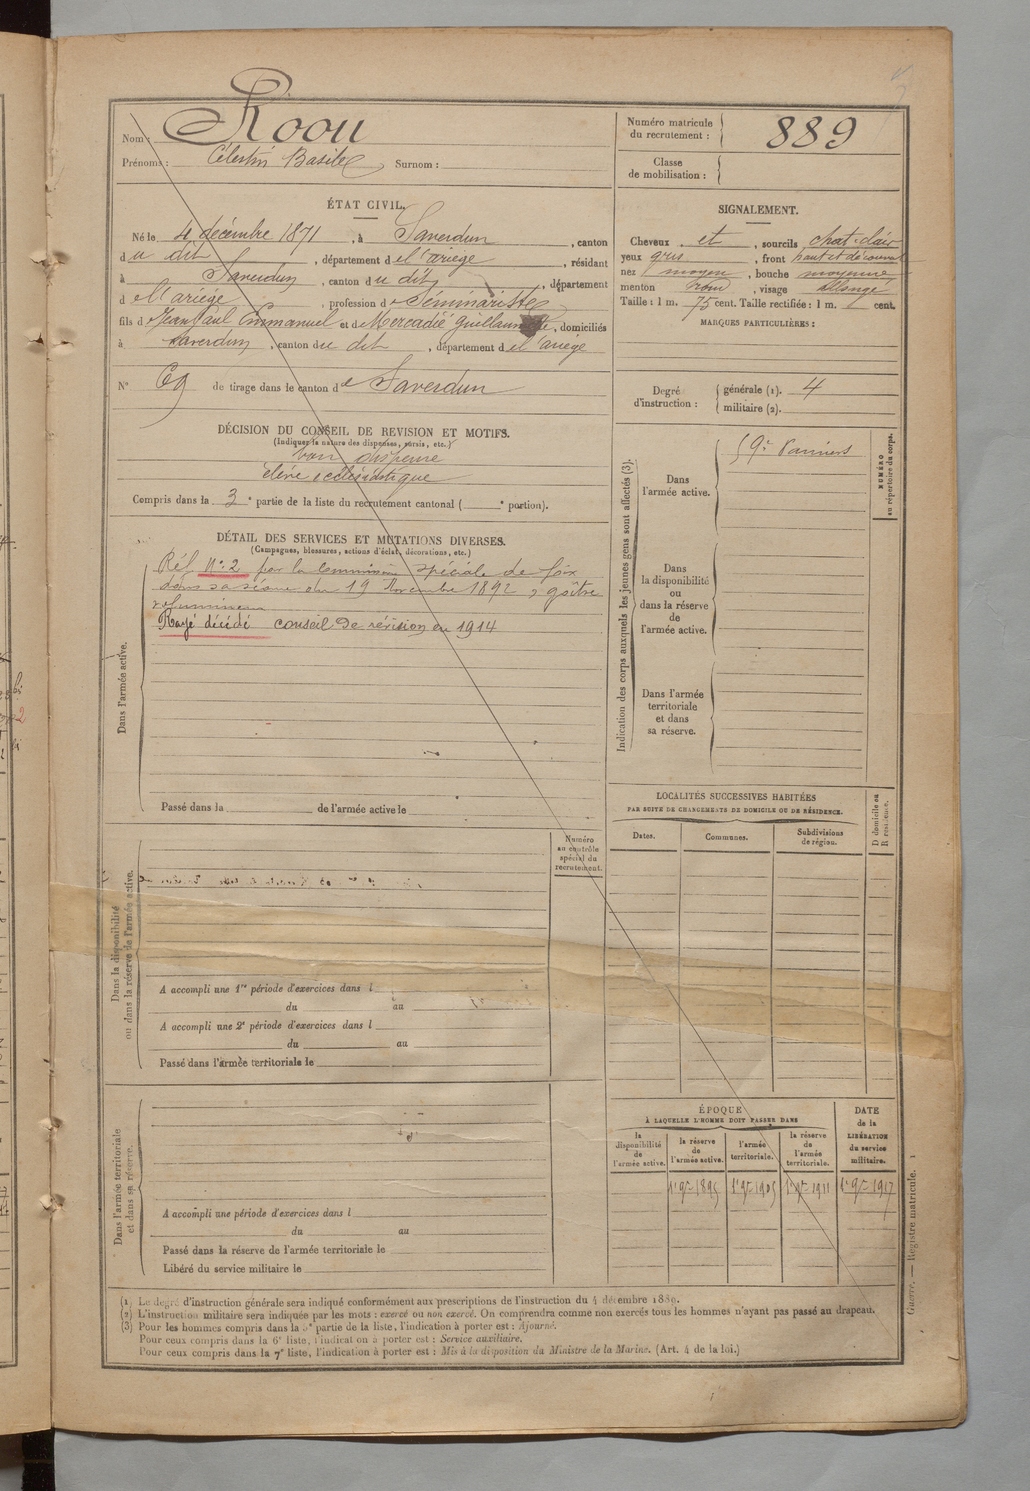 Nom : Roou
Prénoms : Célestin Basile Surnom :
Numéro matricule du recrutement : 889
Classe de mobilisation :
ÉTAT CIVIL.
Né le 4 décembre 1871, à Saverdun, canton
du dit, département de l'ariège, résidant
à Saverdun, canton du dit, département
de l'ariège, profession de Séminariste
fils de Jean Paul Emmanuel et de Mercadié, domiciliés
à Saverdun, canton du dit, département de l'ariège
N° 69 de tirage dans le canton de Saverdun
SIGNALEMENT.
Cheveux et, sourcils chat. clair
yeux gris, front haut et découvert
nez moyen, bouche moyenne
menton rond, visage allongé
Taille : 1 m. 75 cent. Taille rectifiée : 1 m. cent.
MARQUES PARTICULIÈRES :
Degré d'instruction : générale (1). 4
militaire (2).
DÉCISION DU CONSEIL DE REVISION ET MOTIFS.
(Indiquer la nature des dispenses, sursis, etc.)
bon dispense
élève ecclésiastique
Compris dans la 3e partie de la liste du recrutement cantonal ( e portion).
DÉTAIL DES SERVICES ET MUTATIONS DIVERSES.
(Campagnes, blessures, actions d'éclat, décorations, etc.)
Dans l'armée active.
Réf. N° 2 par la Commission spéciale de foix
dans sa séance du 19 Novembre 1892, goître
volumineux
Rayé décédé conseil de révision en 1914
Passé dans la de l'armée active le
Indication des corps auxquels les jeunes gens sont affectés (3).
NUMÉRO au répertoire du corps.
Dans l'armée active.
59e Pamiers
Dans la disponibilité ou dans la réserve de l'armée active.
Dans l'armée territoriale et dans sa réserve.
LOCALITÉS SUCCESSIVES HABITÉES
PAR SUITE DE CHANGEMENTS DE DOMICILE OU DE RÉSIDENCE.
D domicile ou R résidence.
Dates. Communes. Subdivisions de région.
Numéro au contrôle spécial du recrutement.
Dans la disponibilité ou dans la réserve de l'armée active.
A accompli une 1re période d'exercices dans l
du au
A accompli une 2e période d'exercices dans l
du au
Passé dans l'armée territoriale le
Dans l'armée territoriale et dans sa réserve.
A accompli une période d'exercices dans l
du au
Passé dans la réserve de l'armée territoriale le
Libéré du service militaire le
ÉPOQUE
À LAQUELLE L'HOMME DOIT PASSER DANS
la disponibilité de l'armée active.
la réserve de l'armée active.
l'armée territoriale.
la réserve de l'armée territoriale.
DATE de la LIBÉRATION du service militaire.
1er 9bre 1895 1er 9bre 1905 1er 9bre 1911 1er 9bre 1917
Guerre. — Registre matricule. 1
(1) Le degré d'instruction générale sera indiqué conformément aux prescriptions de l'instruction du 4 décembre 1889.
(2) L'instruction militaire sera indiquée par les mots : exercé ou non exercé. On comprendra comme non exercés tous les hommes n'ayant pas passé au drapeau.
(3) Pour les hommes compris dans la 5e partie de la liste, l'indication à porter est : Ajourné.
Pour ceux compris dans la 6e liste, l'indication à porter est : Service auxiliaire.
Pour ceux compris dans la 7e liste, l'indication à porter est : Mis à la disposition du Ministre de la Marine. (Art. 4 de la loi.)